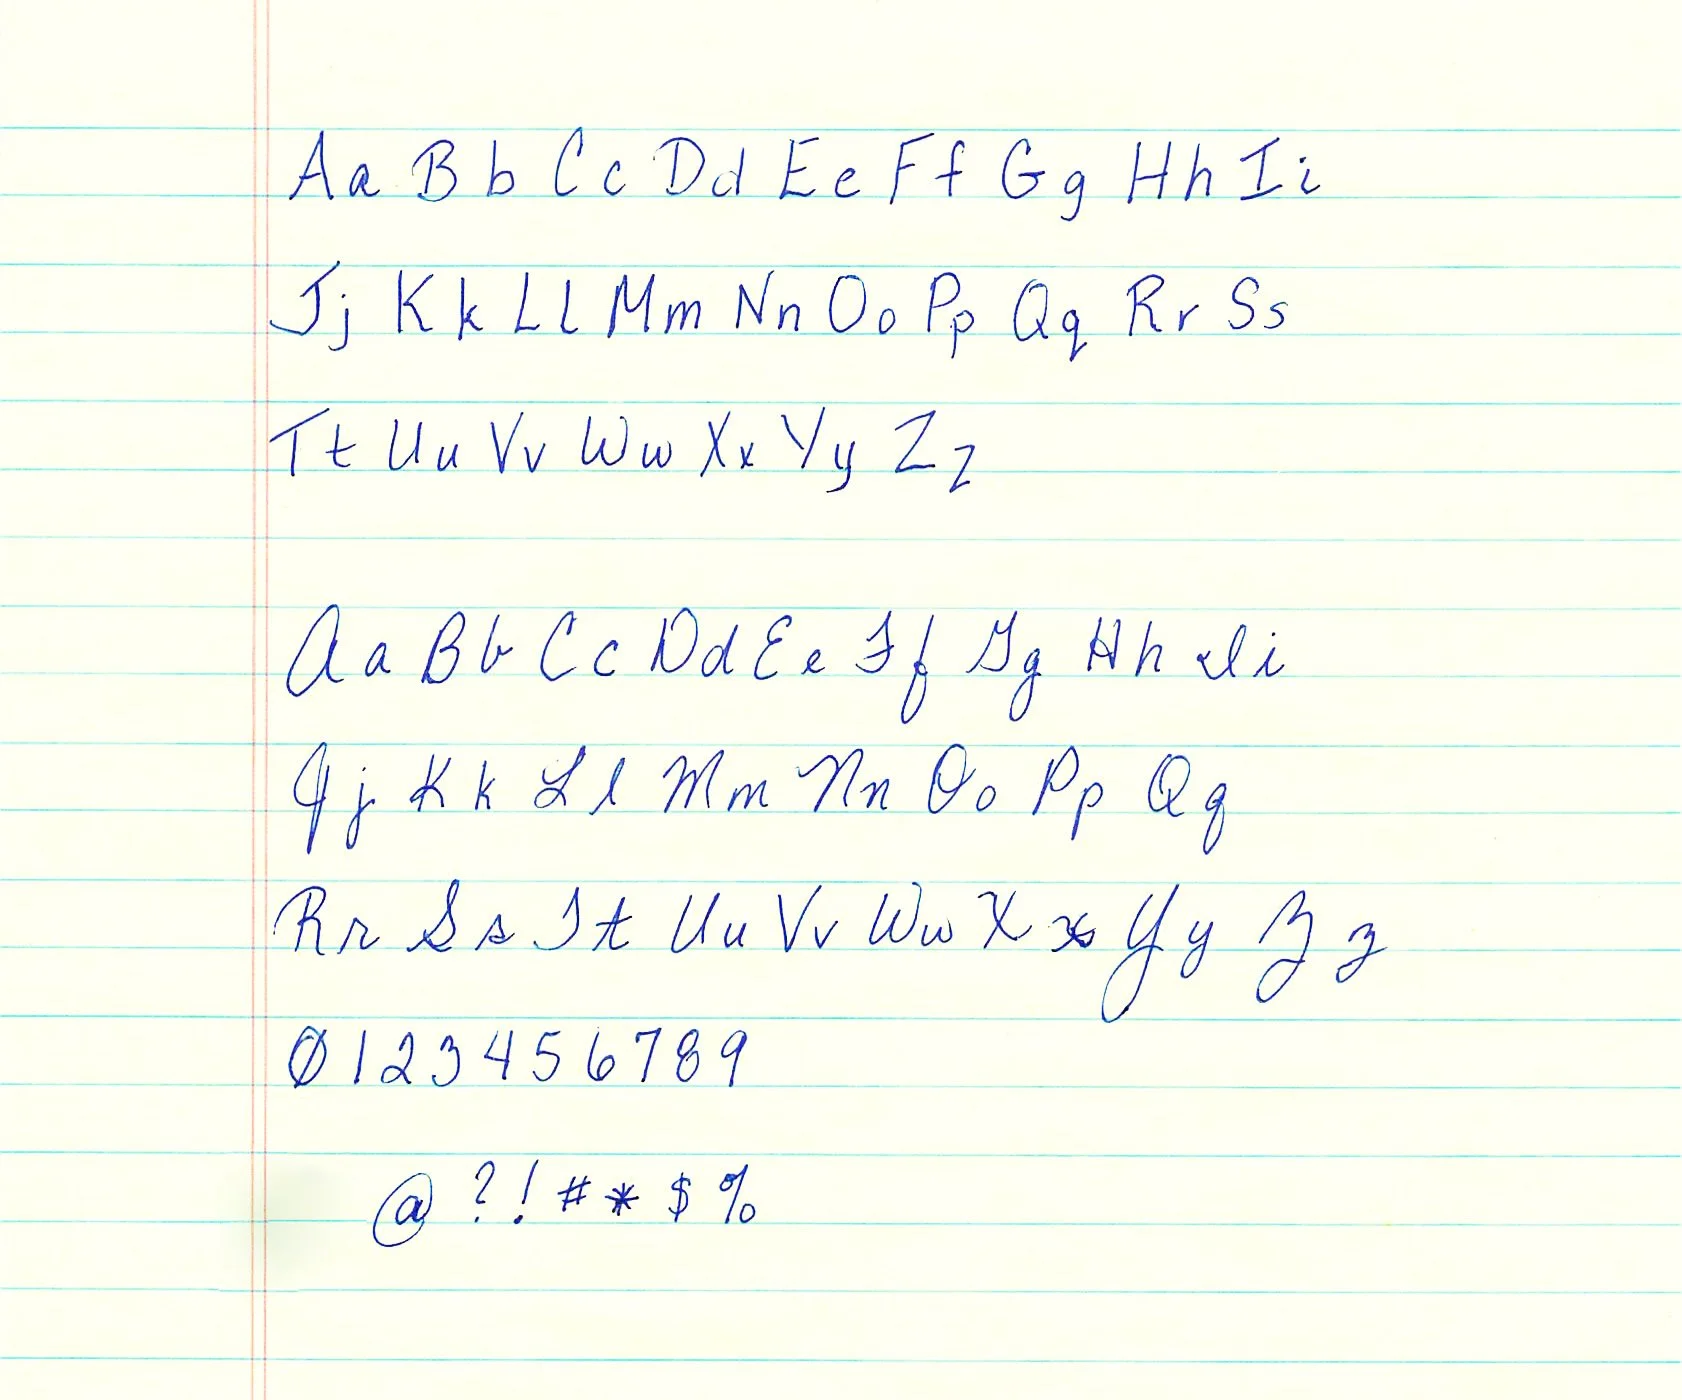 Aa Bb Cc Dd Ee Ff Gg Hh Ii
Jj Kk Ll Mm Nn Oo Pp Qq Rr Ss
Tt Uu Vv Ww Xx Yy Zz
Aa Bb Cc Dd Ee Ff Gg Hh Ii
Jj Kk Ll Mm Nn Oo Pp Qq
Rr Ss Tt Uu Vv Ww Xx Yy Zz
0123456789
@ ? ! # * $ %